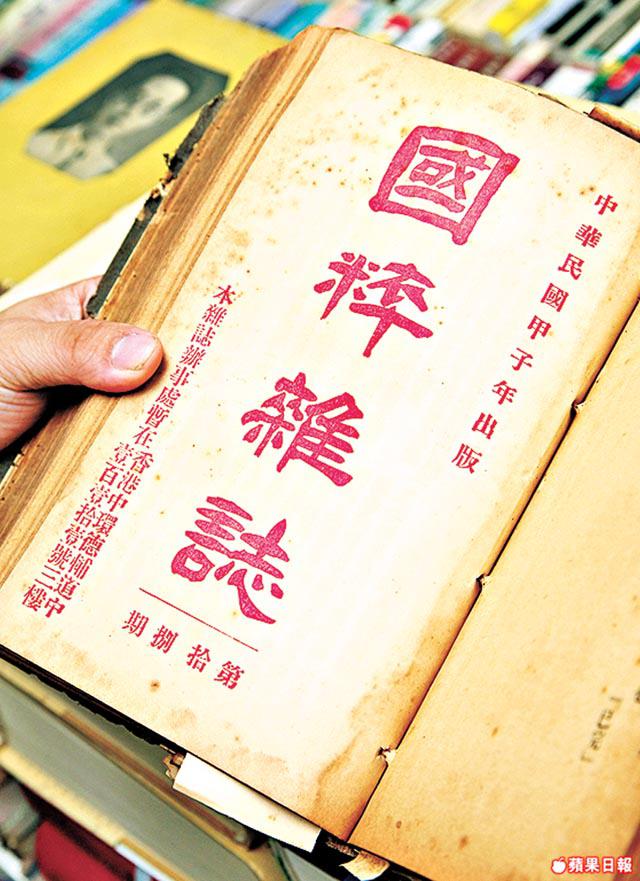 中華民國甲子年出版
國粹雜誌
第拾捌期
本雜誌辦事處暫在
香港中環德輔道中
壹百壹拾壹號三樓
蘋果日報